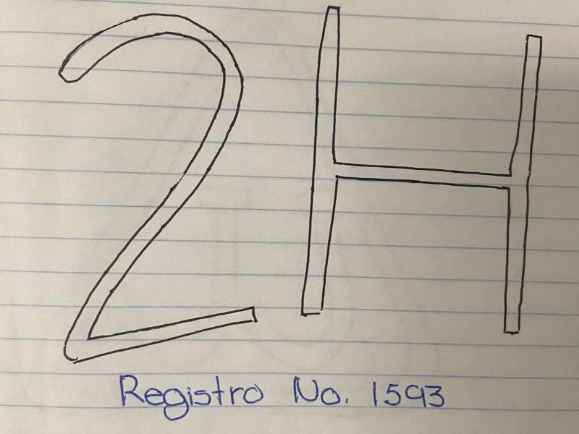 2H
Registro No. 1593